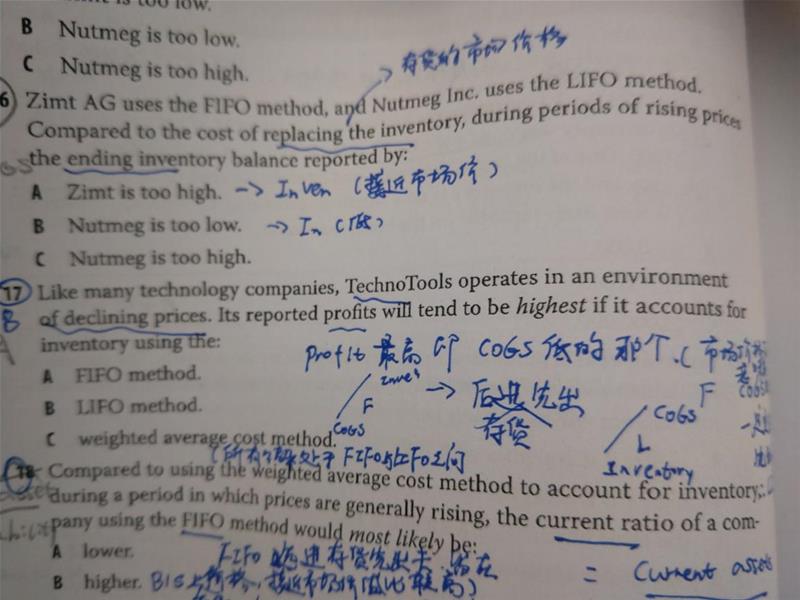 is too low.
B Nutmeg is too low.
C Nutmeg is too high.
存货的市场价格
6 Zimt AG uses the FIFO method, and Nutmeg Inc. uses the LIFO method.
Compared to the cost of replacing the inventory, during periods of rising prices
the ending inventory balance reported by:
A Zimt is too high. → Inven (接近市场价)
B Nutmeg is too low. → In (低)
C Nutmeg is too high.
17 Like many technology companies, TechnoTools operates in an environment
B of declining prices. Its reported profits will tend to be highest if it accounts for
inventory using the:
Profit 最高 即 COGS 低的 那个. (市场价格
A FIFO method.
Inven
F
COGS
→ 后进先出
存货
F
COGS
L
Inventory
B LIFO method.
C weighted average cost method.
处于 FIFO与LIFO之间
18 Compared to using the weighted average cost method to account for inventory,
during a period in which prices are generally rising, the current ratio of a com-
pany using the FIFO method would most likely be:
A lower.
FIFO 存货先
B higher.
接近市场价
= Current assets